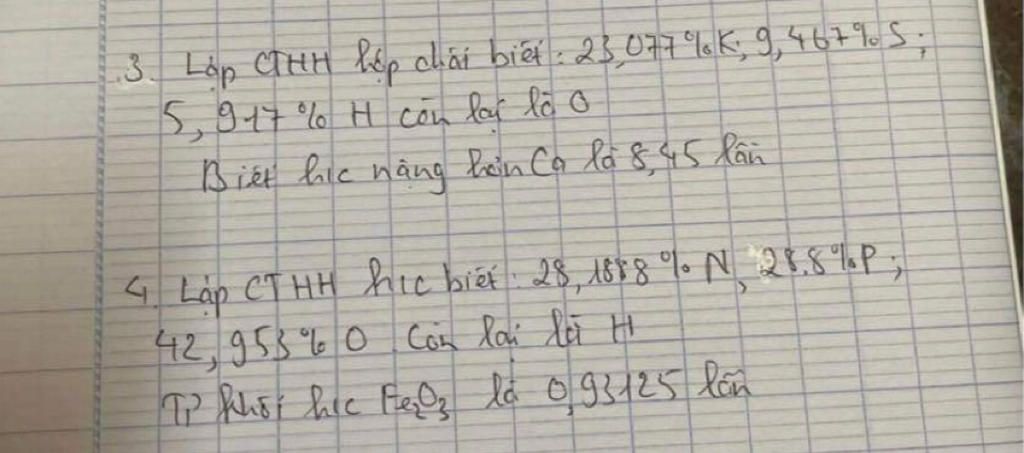 3. Lập CTHH hợp chất biết: 23,077%K; 9,467%S;
5,917% H còn lại là O
Biết h/c nặng hơn Ca là 8,45 lần
4. Lập CTHH h/c biết: 28,1888% N, 28,8%P;
42,953% O còn lại là H
Tỉ khối h/c Fe₂O₃ là 0,93125 lần